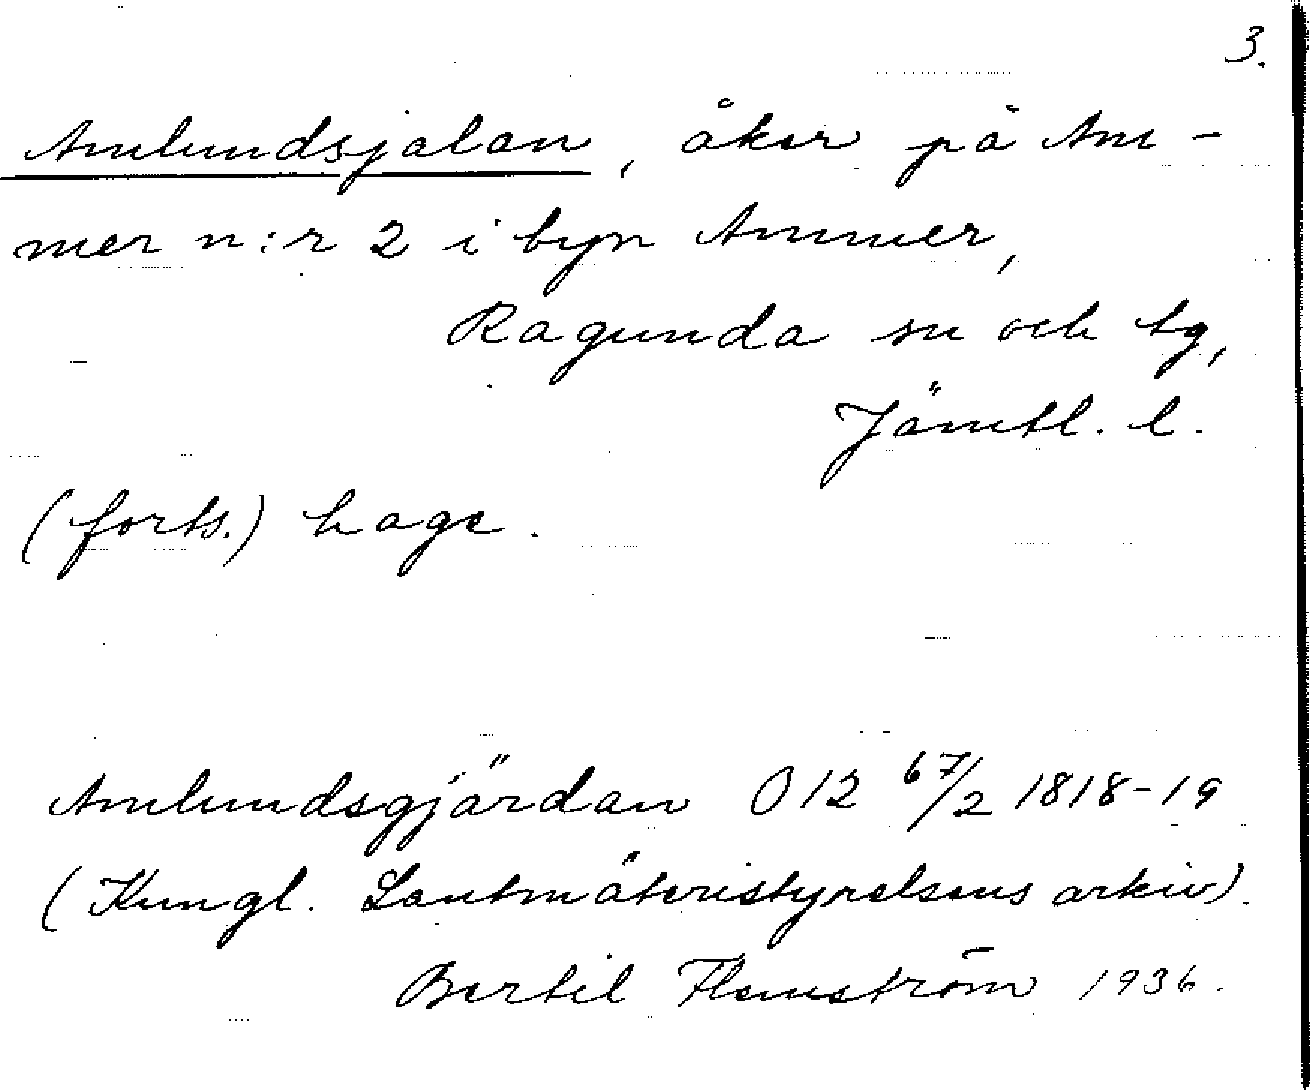 3.
Amlundsjalan, åker på Am-
mer n:r 2 i byn Ammer,
Ragunda sn och tg,
Jämtl. l.
(forts.) hage.
Amlundsgjärdan O 12 67/2 1818-19
(Kungl. Lantmäteristyrelsens arkiv).
Bertil Flemström 1936.